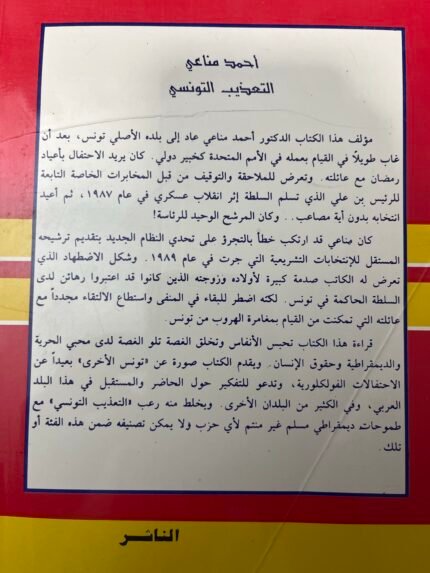 أحمد مناعي
التعذيب التونسي
مؤلف هذا الكتاب الدكتور أحمد مناعي عاد إلى بلده الأصلي تونس، بعد أن
غاب طويلاً في القيام بعمله في الأمم المتحدة كخبير دولي. كان يريد الاحتفال بأعياد
رمضان مع عائلته. وتعرض للملاحقة والتوقيف من قبل المخابرات الخاصة التابعة
للرئيس بن علي الذي تسلم السلطة إثر انقلاب عسكري في عام ١٩٨٧، ثم أعيد
انتخابه بدون أية مصاعب.. وكان المرشح الوحيد للرئاسة!
كان مناعي قد ارتكب خطأ بالتجرؤ على تحدي النظام الجديد بتقديم ترشيحه
المستقل للإنتخابات التشريعية التي جرت في عام ١٩٨٩. وشكل الاضطهاد الذي
تعرض له الكاتب صدمة كبيرة لأولاده وزوجته الذين كانوا قد اعتبروا رهائن لدى
السلطة الحاكمة في تونس. لكنه اضطر للبقاء في المنفى واستطاع الالتقاء مجدداً مع
عائلته التي تمكنت من القيام بمغامرة الهروب من تونس.
قراءة هذا الكتاب تحبس الأنفاس وتخلق الغصة تلو الغصة لدى محبي الحرية
والديمقراطية وحقوق الإنسان. ويقدم الكتاب صورة عن «تونس الأخرى» بعيداً عن
الاحتفالات الفولكلورية، وتدعو للتفكير حول الحاضر والمستقبل في هذا البلد
العربي، وفي الكثير من البلدان الأخرى. ويختلط منه رعب «التعذيب التونسي» مع
طموحات ديمقراطي مسلم غير منتم لأي حزب ولا يمكن تصنيفه ضمن هذه الفئة أو
تلك.
الناشر